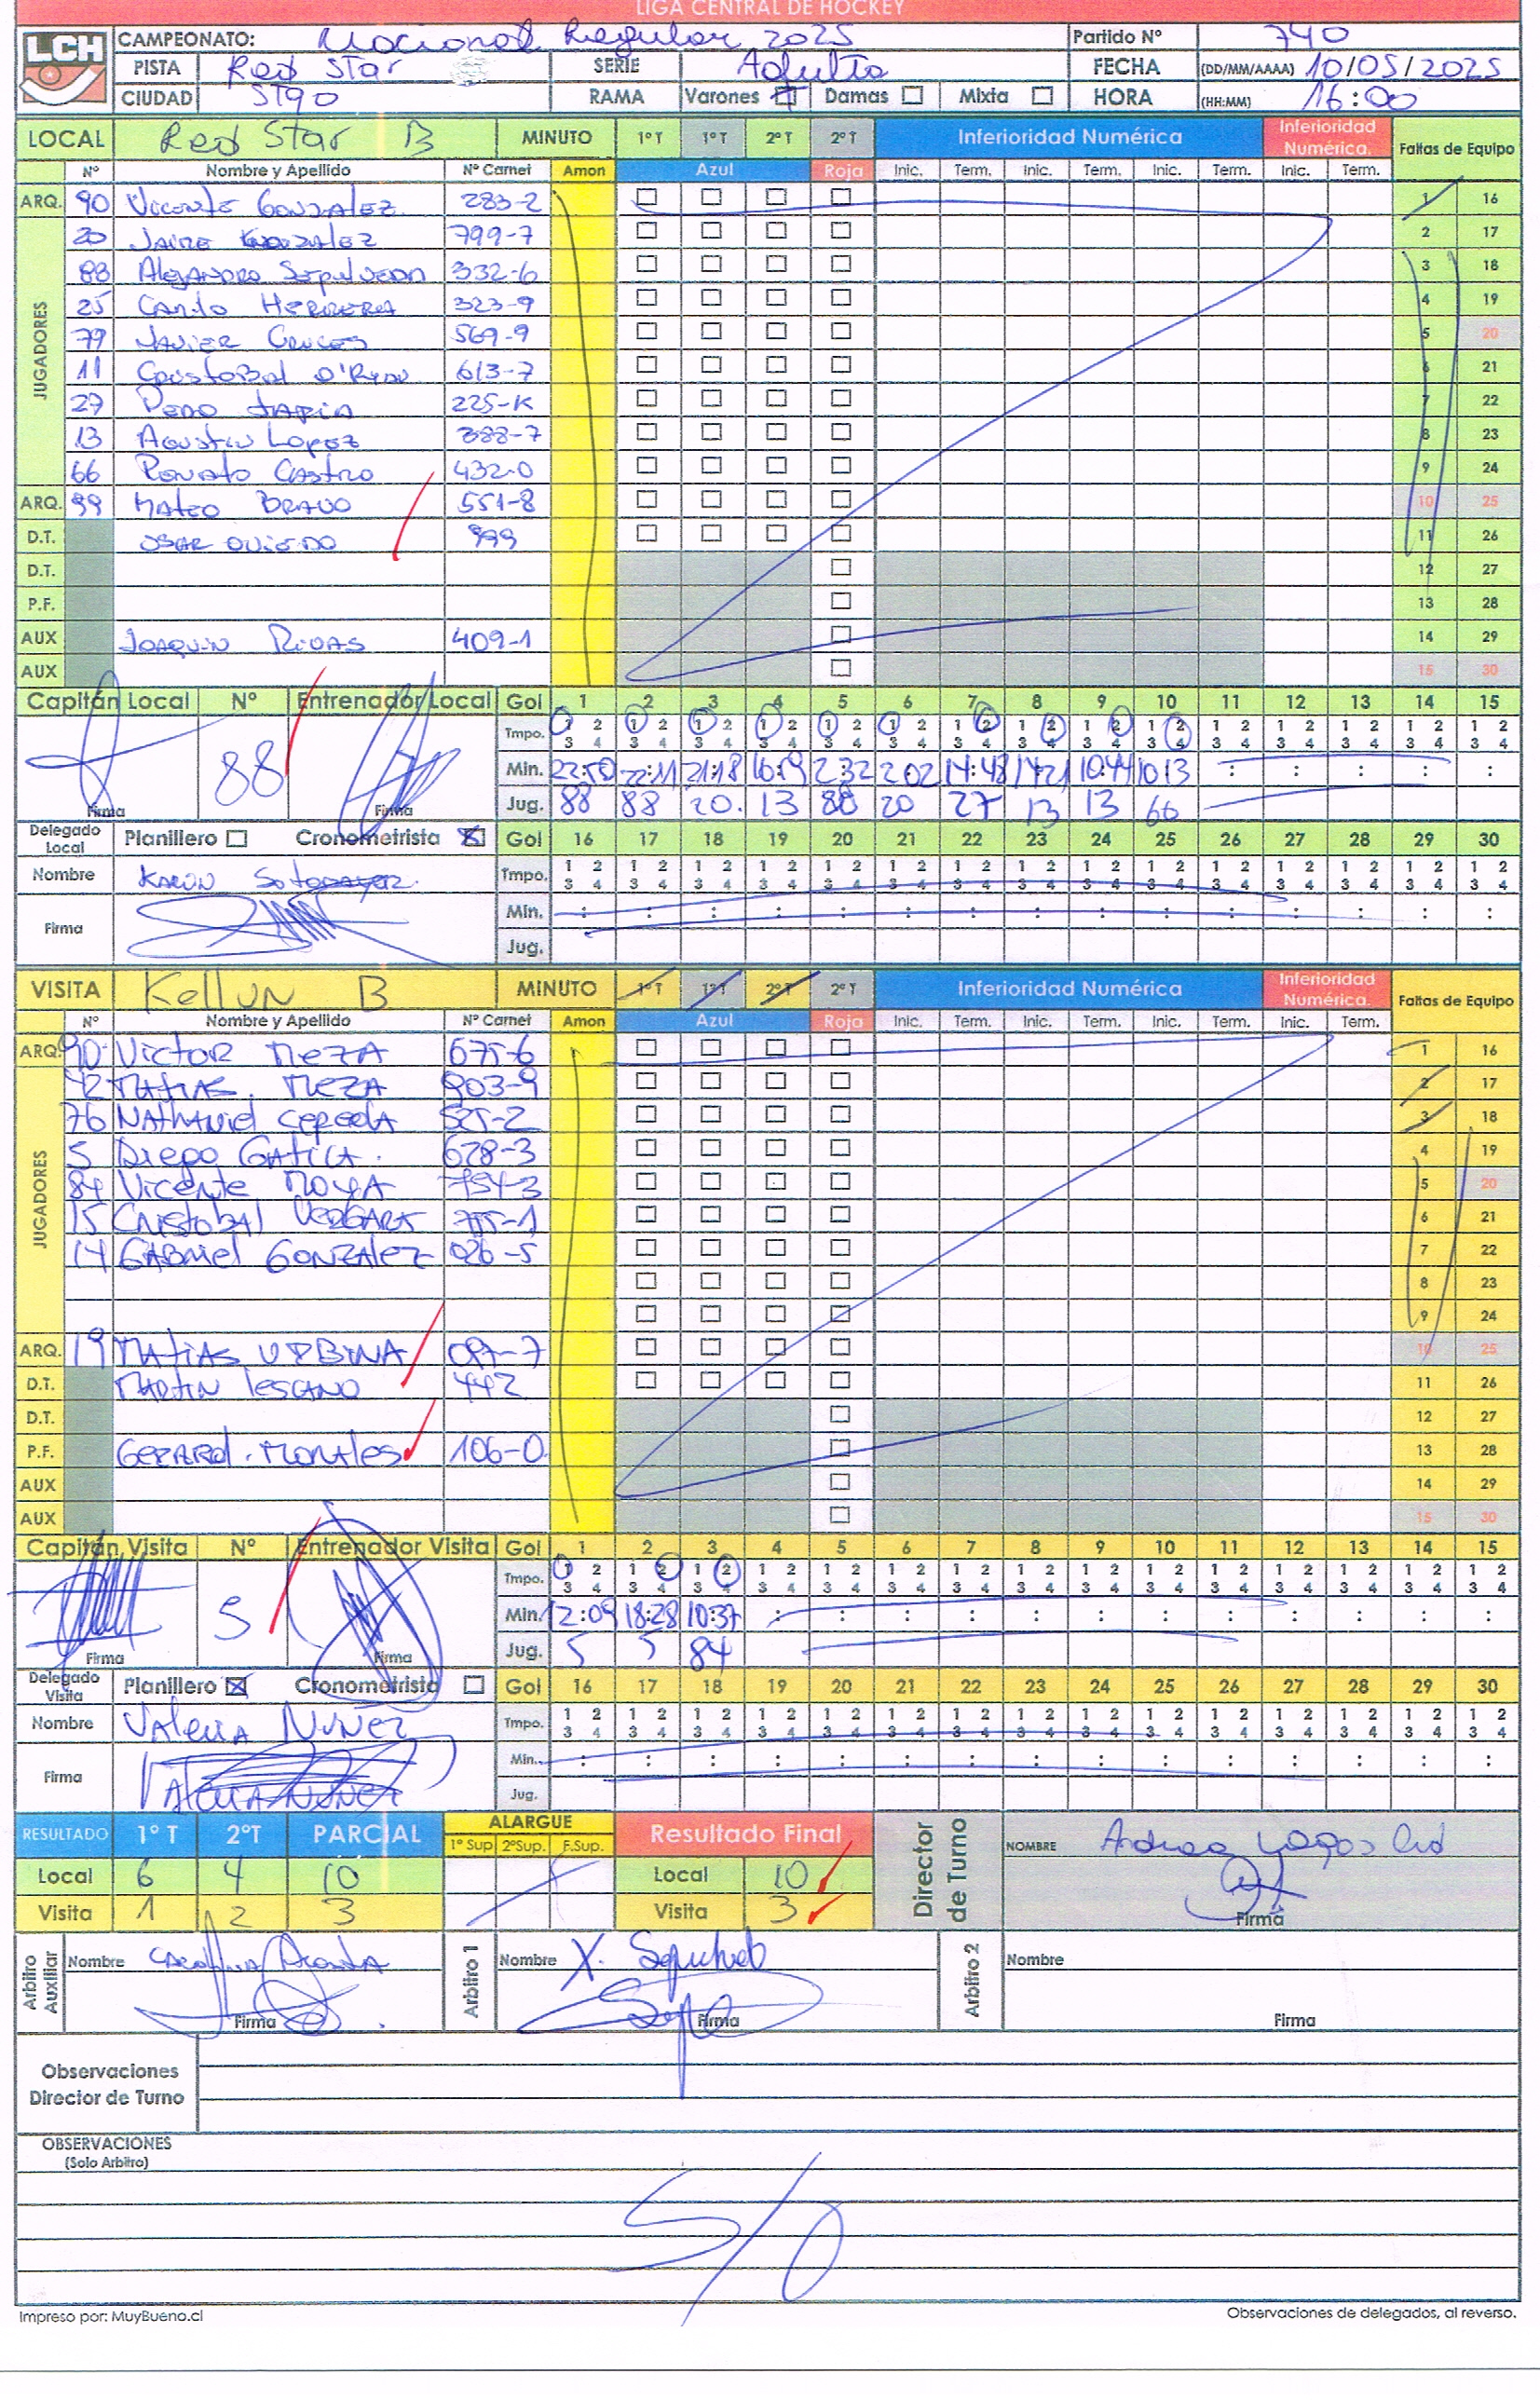 LIGA CENTRAL DE HOCKEY
LCH
CAMPEONATO: Nacional Regular 2025 Partido Nº 740
PISTA Red Star SERIE Adulto FECHA (DD/MM/AAAA) 10/05/2025
CIUDAD STGO RAMA Varones Damas Mixta HORA (HH:MM) 16:00
LOCAL Red Star B MINUTO 1º T 1º T 2º T 2º T Inferioridad Numérica Inferioridad Numérica. Faltas de Equipo
Nº Nombre y Apellido Nº Carnet Amon Azul Roja Inic. Term. Inic. Term. Inic. Term. Inic. Term.
ARQ. 90 Vicente Gonzalez 283-2 1 16
JUGADORES
20 Jaime Gonzalez 799-7 2 17
88 Alejandro Sepulveda 332-6 3 18
25 Camilo Herrera 323-9 4 19
79 Javier Cruces 569-9 5 20
11 Cristobal O'Ryan 613-7 6 21
27 Pedro Tapia 225-K 7 22
13 Agustin Lopez 388-7 8 23
66 Renato Castro 432-0 9 24
ARQ. 99 Mateo Bravo 551-8 10 25
D.T. Oscar Oviedo 999 11 26
D.T. 12 27
P.F. 13 28
AUX Joaquin Rivas 409-1 14 29
AUX 15 30
Capitán Local Nº Entrenador Local Gol 1 2 3 4 5 6 7 8 9 10 11 12 13 14 15
Tmpo. 1 2 3 4 1 2 3 4 1 2 3 4 1 2 3 4 1 2 3 4 1 2 3 4 1 2 3 4 1 2 3 4 1 2 3 4 1 2 3 4 1 2 3 4 1 2 3 4 1 2 3 4 1 2 3 4 1 2 3 4
88 Min. 22:50 22:11 21:18 2:32 2:02 14:48 14:21 10:44 10:13 : : : : :
Firma Firma Jug. 88 88 20. 13 88 20 27 13 13 66
Delegado Local Planillero Cronometrista Gol 16 17 18 19 20 21 22 23 24 25 26 27 28 29 30
Nombre Karin Sotomayor. Tmpo. 1 2 3 4 1 2 3 4 1 2 3 4 1 2 3 4 1 2 3 4 1 2 3 4 1 2 3 4 1 2 3 4 1 2 3 4 1 2 3 4 1 2 3 4 1 2 3 4 1 2 3 4 1 2 3 4 1 2 3 4
Firma Min. : : : : : : : : : : : : : : :
Jug.
VISITA Kellun B MINUTO 1º T 1º T 2º T 2º T Inferioridad Numérica Inferioridad Numérica. Faltas de Equipo
Nº Nombre y Apellido Nº Carnet Amon Azul Roja Inic. Term. Inic. Term. Inic. Term. Inic. Term.
ARQ. 90 Victor Meza 675-6 1 16
JUGADORES
42 Matias. Meza 903-9 2 17
76 Nathaniel Cepeda 525-2 3 18
5 Diego Gatica. 678-3 4 19
84 Vicente Moya 754-3 5 20
15 Cristobal Vergara 6 21
14 Gabriel Gonzalez 026-5 7 22
8 23
9 24
ARQ. 19 Matias Urbina 10 25
D.T. Martin Lescano 442 11 26
D.T. 12 27
P.F. Gerard. Morales 106-0 13 28
AUX 14 29
AUX 15 30
Capitán Visita Nº Entrenador Visita Gol 1 2 3 4 5 6 7 8 9 10 11 12 13 14 15
Tmpo. 1 2 3 4 1 2 3 4 1 2 3 4 1 2 3 4 1 2 3 4 1 2 3 4 1 2 3 4 1 2 3 4 1 2 3 4 1 2 3 4 1 2 3 4 1 2 3 4 1 2 3 4 1 2 3 4 1 2 3 4
5 Min. 12:09 18:28 10:37 : : : : : : : : : : : :
Firma Firma Jug. 5 5 84
Delegado Visita Planillero Cronometrista Gol 16 17 18 19 20 21 22 23 24 25 26 27 28 29 30
Nombre Valeria Nuñez Tmpo. 1 2 3 4 1 2 3 4 1 2 3 4 1 2 3 4 1 2 3 4 1 2 3 4 1 2 3 4 1 2 3 4 1 2 3 4 1 2 3 4 1 2 3 4 1 2 3 4 1 2 3 4 1 2 3 4 1 2 3 4
Firma Valeria Nuñez Min. : : : : : : : : : : : : : : :
Jug.
RESULTADO 1º T 2ºT PARCIAL ALARGUE 1º Sup 2ºSup. F.Sup. Resultado Final Director de Turno NOMBRE Andrea Lagos Cid
Local 6 4 10 Local 10
Visita 1 2 3 Visita 3 Firma
Arbitro Auxiliar Nombre Carolina Acosta Arbitro 1 Nombre X. Sepulveda Arbitro 2 Nombre
Firma Firma Firma
Observaciones
Director de Turno
OBSERVACIONES
(Solo Arbitro)
S/O
Impreso por: MuyBueno.cl Observaciones de delegados, al reverso.